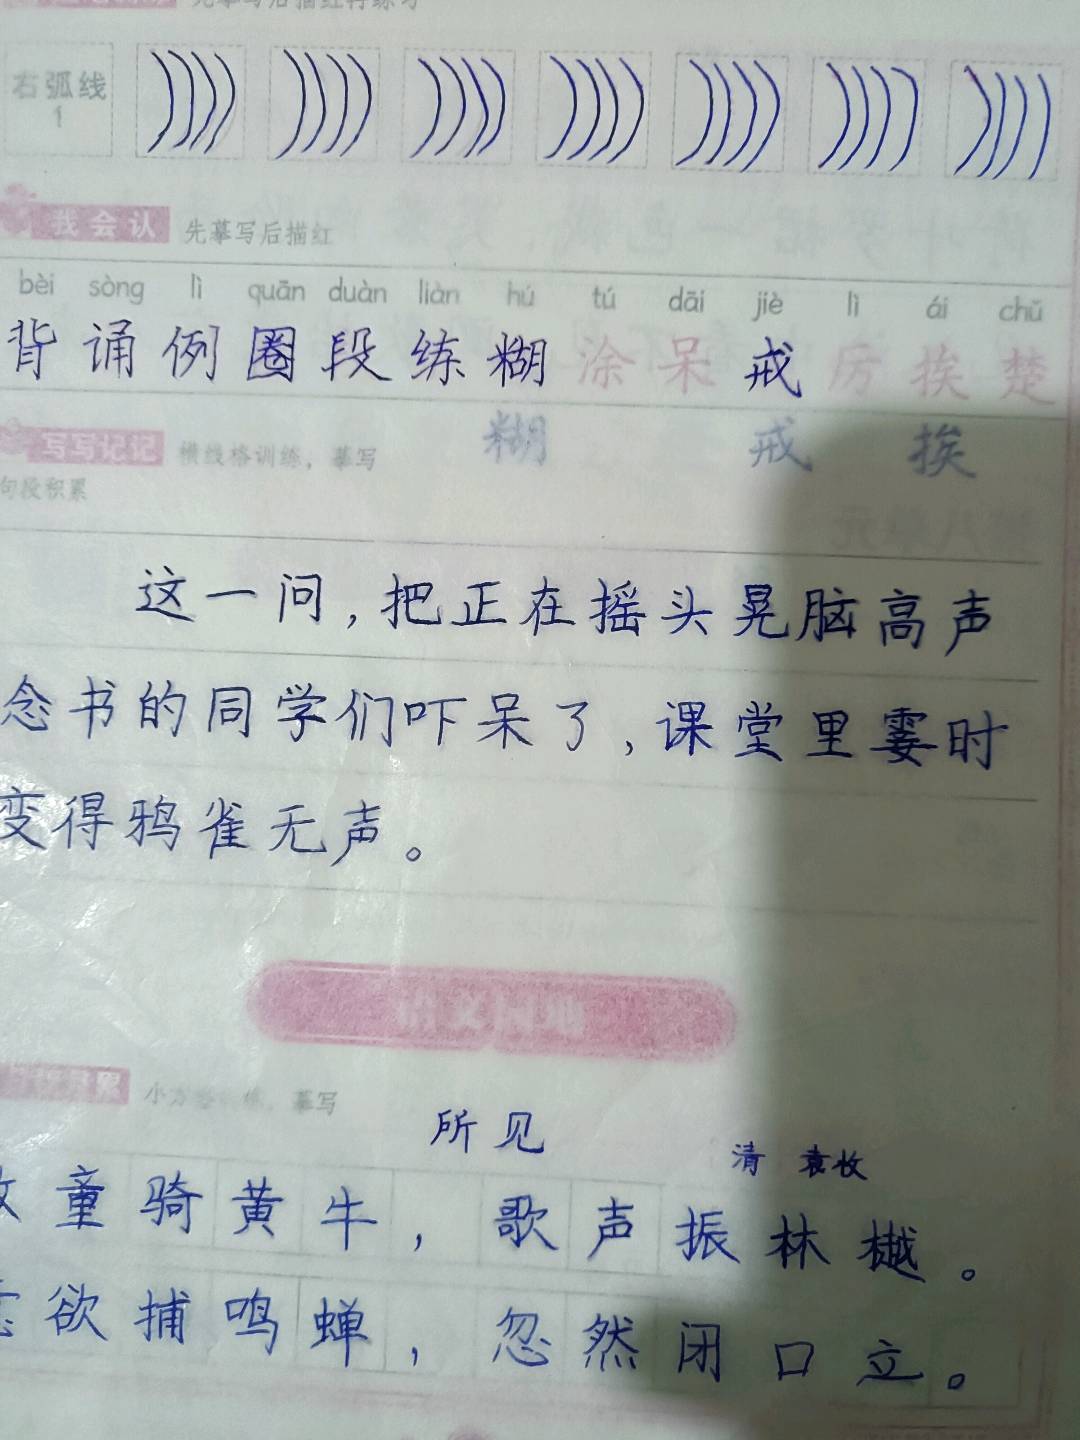 先摹写后描红再练习
右弧线
1
我会认 先摹写后描红
bèi sòng lì quān duàn liàn hú tú dāi jiè lì ái chǔ
背诵例圈段练糊涂呆戒厉挨楚
写写记记 横线格训练，摹写
糊 戒 挨
句段积累
这一问，把正在摇头晃脑高声
念书的同学们吓呆了，课堂里霎时
变得鸦雀无声。
小方格训练，摹写
所见
清 袁枚
牧童骑黄牛，歌声振林樾。
意欲捕鸣蝉，忽然闭口立。